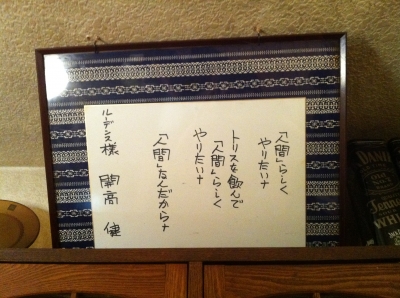 「人間」らしく
やりたいナ
トリスを飲んで
「人間」らしく
やりたいナ
「人間」なんだからナ
ルデンス様 開高 健
DANIEL
Tennessee
WHISKEY